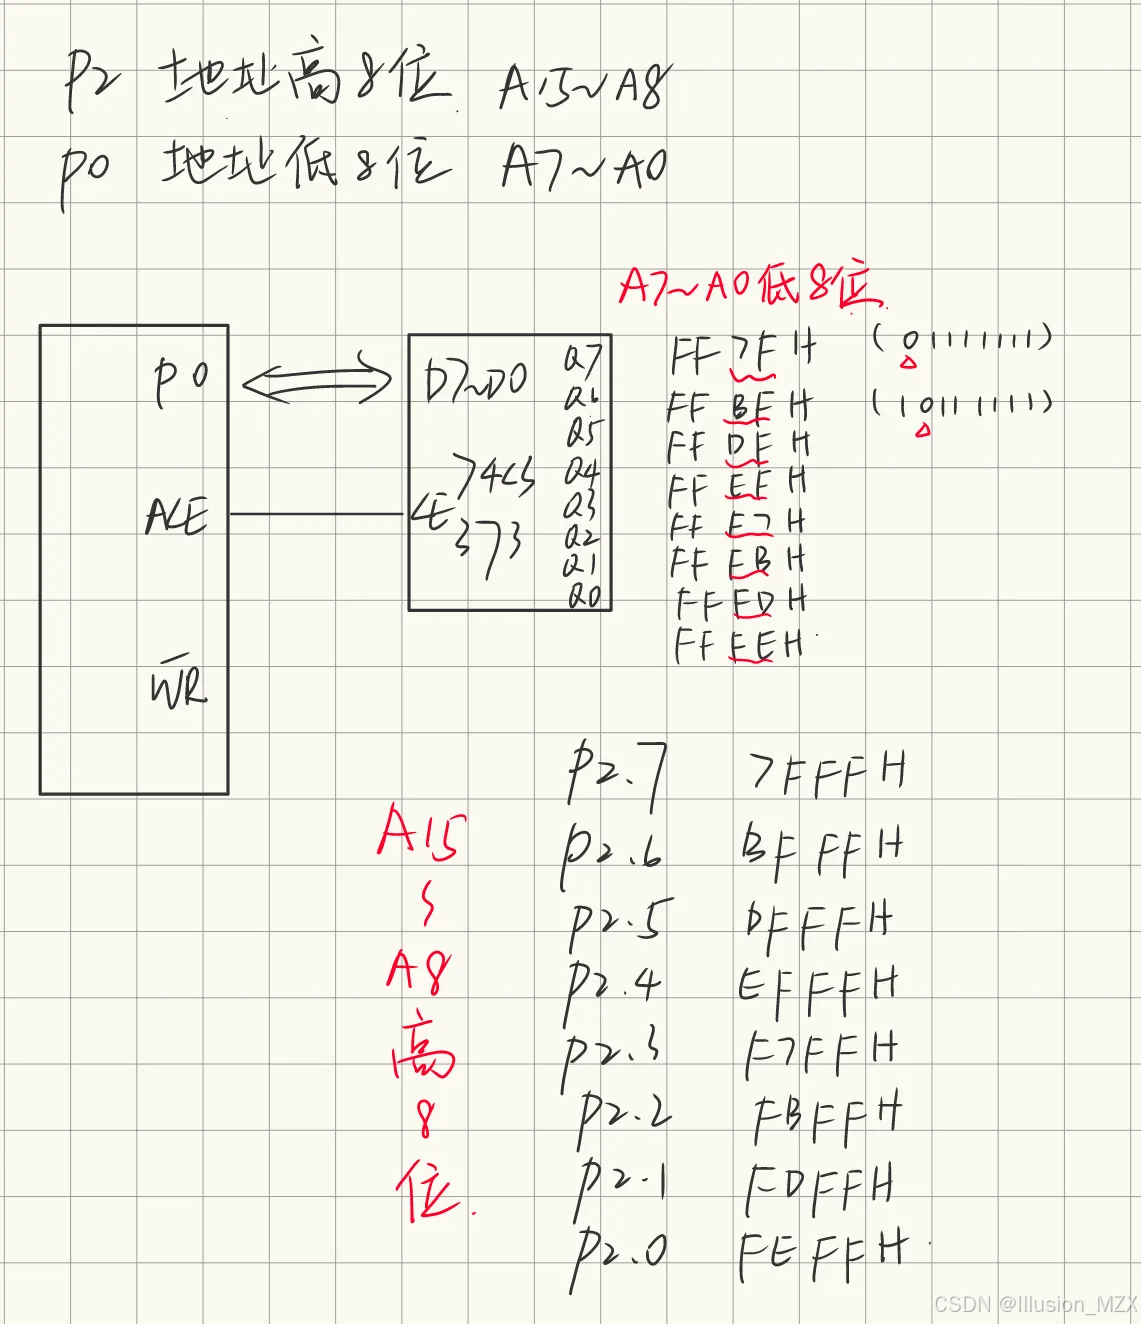 P2 地址高8位 A15~A8
P0 地址低8位 A7~A0
A7~A0低8位
P0
ALE
WR
D7~D0
LE
74LS
373
Q7
Q6
Q5
Q4
Q3
Q2
Q1
Q0
FF7FH (01111111)
FFBFH (10111111)
FFDFH
FFEFH
FFF7H
FFFBH
FFFDH
FFFEH
A15
~
A8
高
8
位
P2.7 7FFFH
P2.6 BFFFH
P2.5 DFFFH
P2.4 EFFFH
P2.3 F7FFH
P2.2 FBFFH
P2.1 FDFFH
P2.0 FEFFH
CSDN @Illusion_MZX